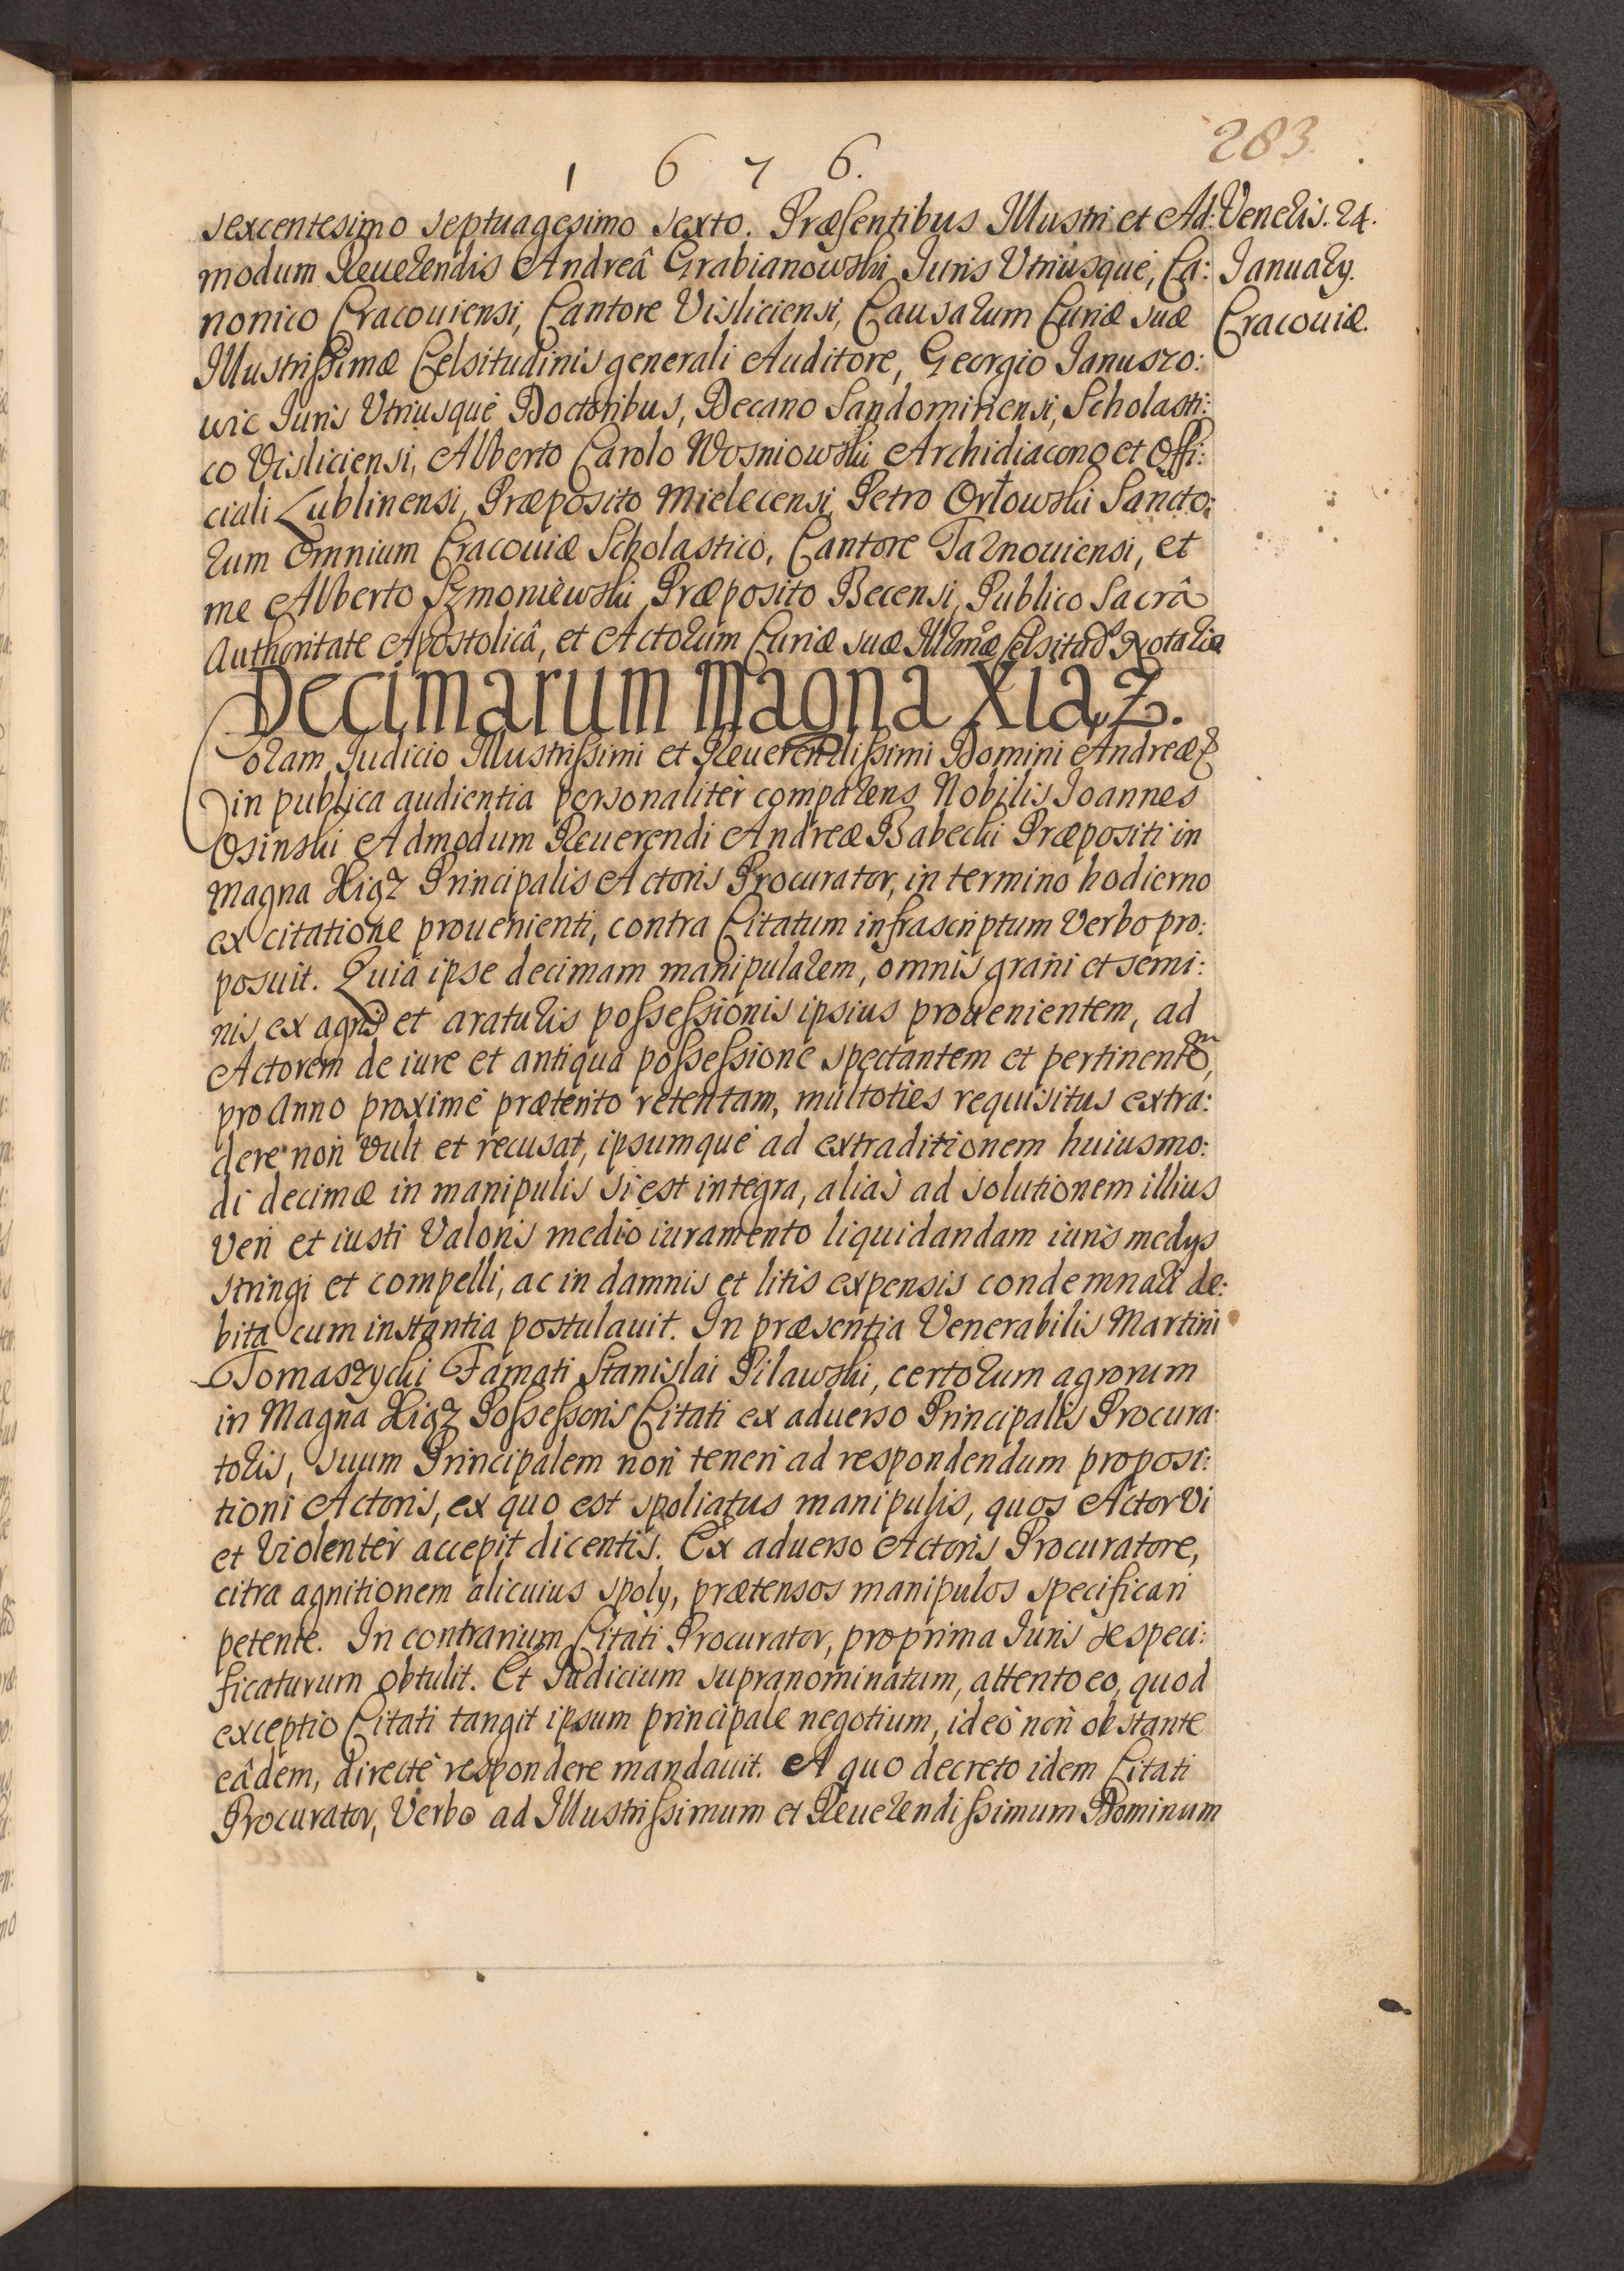 283.
1 6 7 6.
sexcentesimo septuagesimo sexto. Præsentibus Illustri et Ad:
modum Reuerendis Andreâ Grabianowski Iuris Utriusque, Ca:
nonico Cracouiensi, Cantore Visliciensi, Causarum Curiæ suæ
Illustrissimæ Celsitudinis generali Auditore, Georgio Ianuszo:
wic Iuris Utriusque Doctoribus, Decano Sandomiriensi, Scholasti:
co Visliciensi, Alberto Carolo Wosniowski Archidiacono et Offi:
ciali Lublinensi, Præposito Mielecensi, Petro Orłowski Sancto:
rum Omnium Cracouiæ Scholastico, Cantore Tarnouiensi, et
me Alberto Szmoniewski Præposito Becensi, Publico Sacrâ
Authoritate Apostolicâ, et Actorum Curiæ suæ Illmæ Celsitudis Notario
Veneris. 24.
Ianuary.
Cracouiæ.
Decimarum Magna Xiąz.
Coram Iudicio Illustrissimi et Reuerendissimi Domini Andreæ
in publica audientia personaliter comparens Nobilis Ioannes
Osinski Admodum Reuerendi Andreæ Babecki Præpositi in
Magna Xigz Principalis Actoris Procurator, in termino hodierno
ex citatione prouenienti, contra Citatum infrascriptum Verbo pro:
posuit. Quia ipse decimam manipularem, omnis grani et semi:
nis ex agris et araturis possessionis ipsius prouenientem, ad
Actorem de iure et antiqua possessione spectantem et pertinentem,
pro Anno proxime præterito retentam, multoties requisitus extra:
dere non vult et recusat, ipsumque ad extraditionem huiusmo:
di decimæ in manipulis si est integra, alias ad solutionem illius
Veri et iusti Valoris medio iuramento liquidandam iuris medys
stringi et compelli, ac in damnis et litis expensis condemnari de:
bita cum instantia postulauit. In præsentia Venerabilis Martini
Tomaszycki Famati Stanislai Pilawski, certorum agrorum
in Magna Xigz Possessoris Citati ex aduerso Principalis Procura:
toris, suum Principalem non teneri ad respondendum proposi:
tioni Actoris, ex quo est spoliatus manipulis, quos Actor Vi
et Violenter accepit dicentis. Ex aduerso Actoris Procuratore,
citra agnitionem alicuius spoly, prætensos manipulos specificari
petente. In contrarium Citati Procurator, pro prima Iuris se speci:
ficaturum obtulit. Et Iudicium supranominatum, attento eo, quod
exceptio Citati tangit ipsum principale negotium, ideo non obstante
eâdem, directe respondere mandauit. A quo decreto idem Citati
Procurator, Verbo ad Illustrissimum et Reuerendissimum Dominum